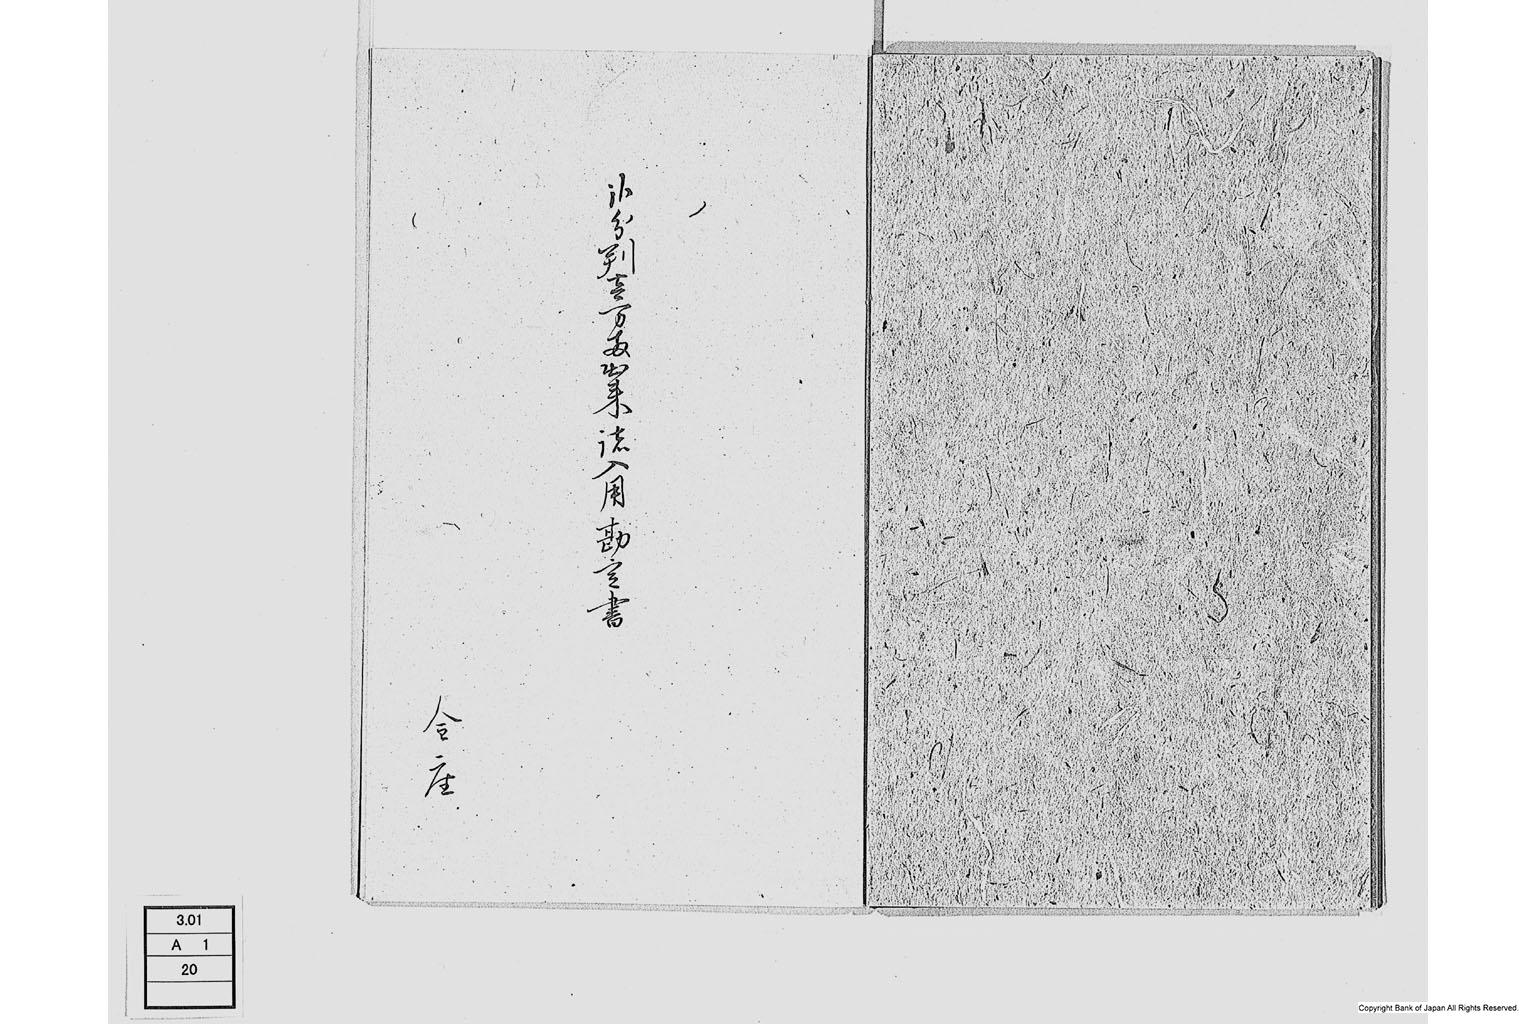 弐分判壱万両出来諸入用勘定書
金座
3.01
A 1
20
Copyright Bank of Japan All Rights Reserved.